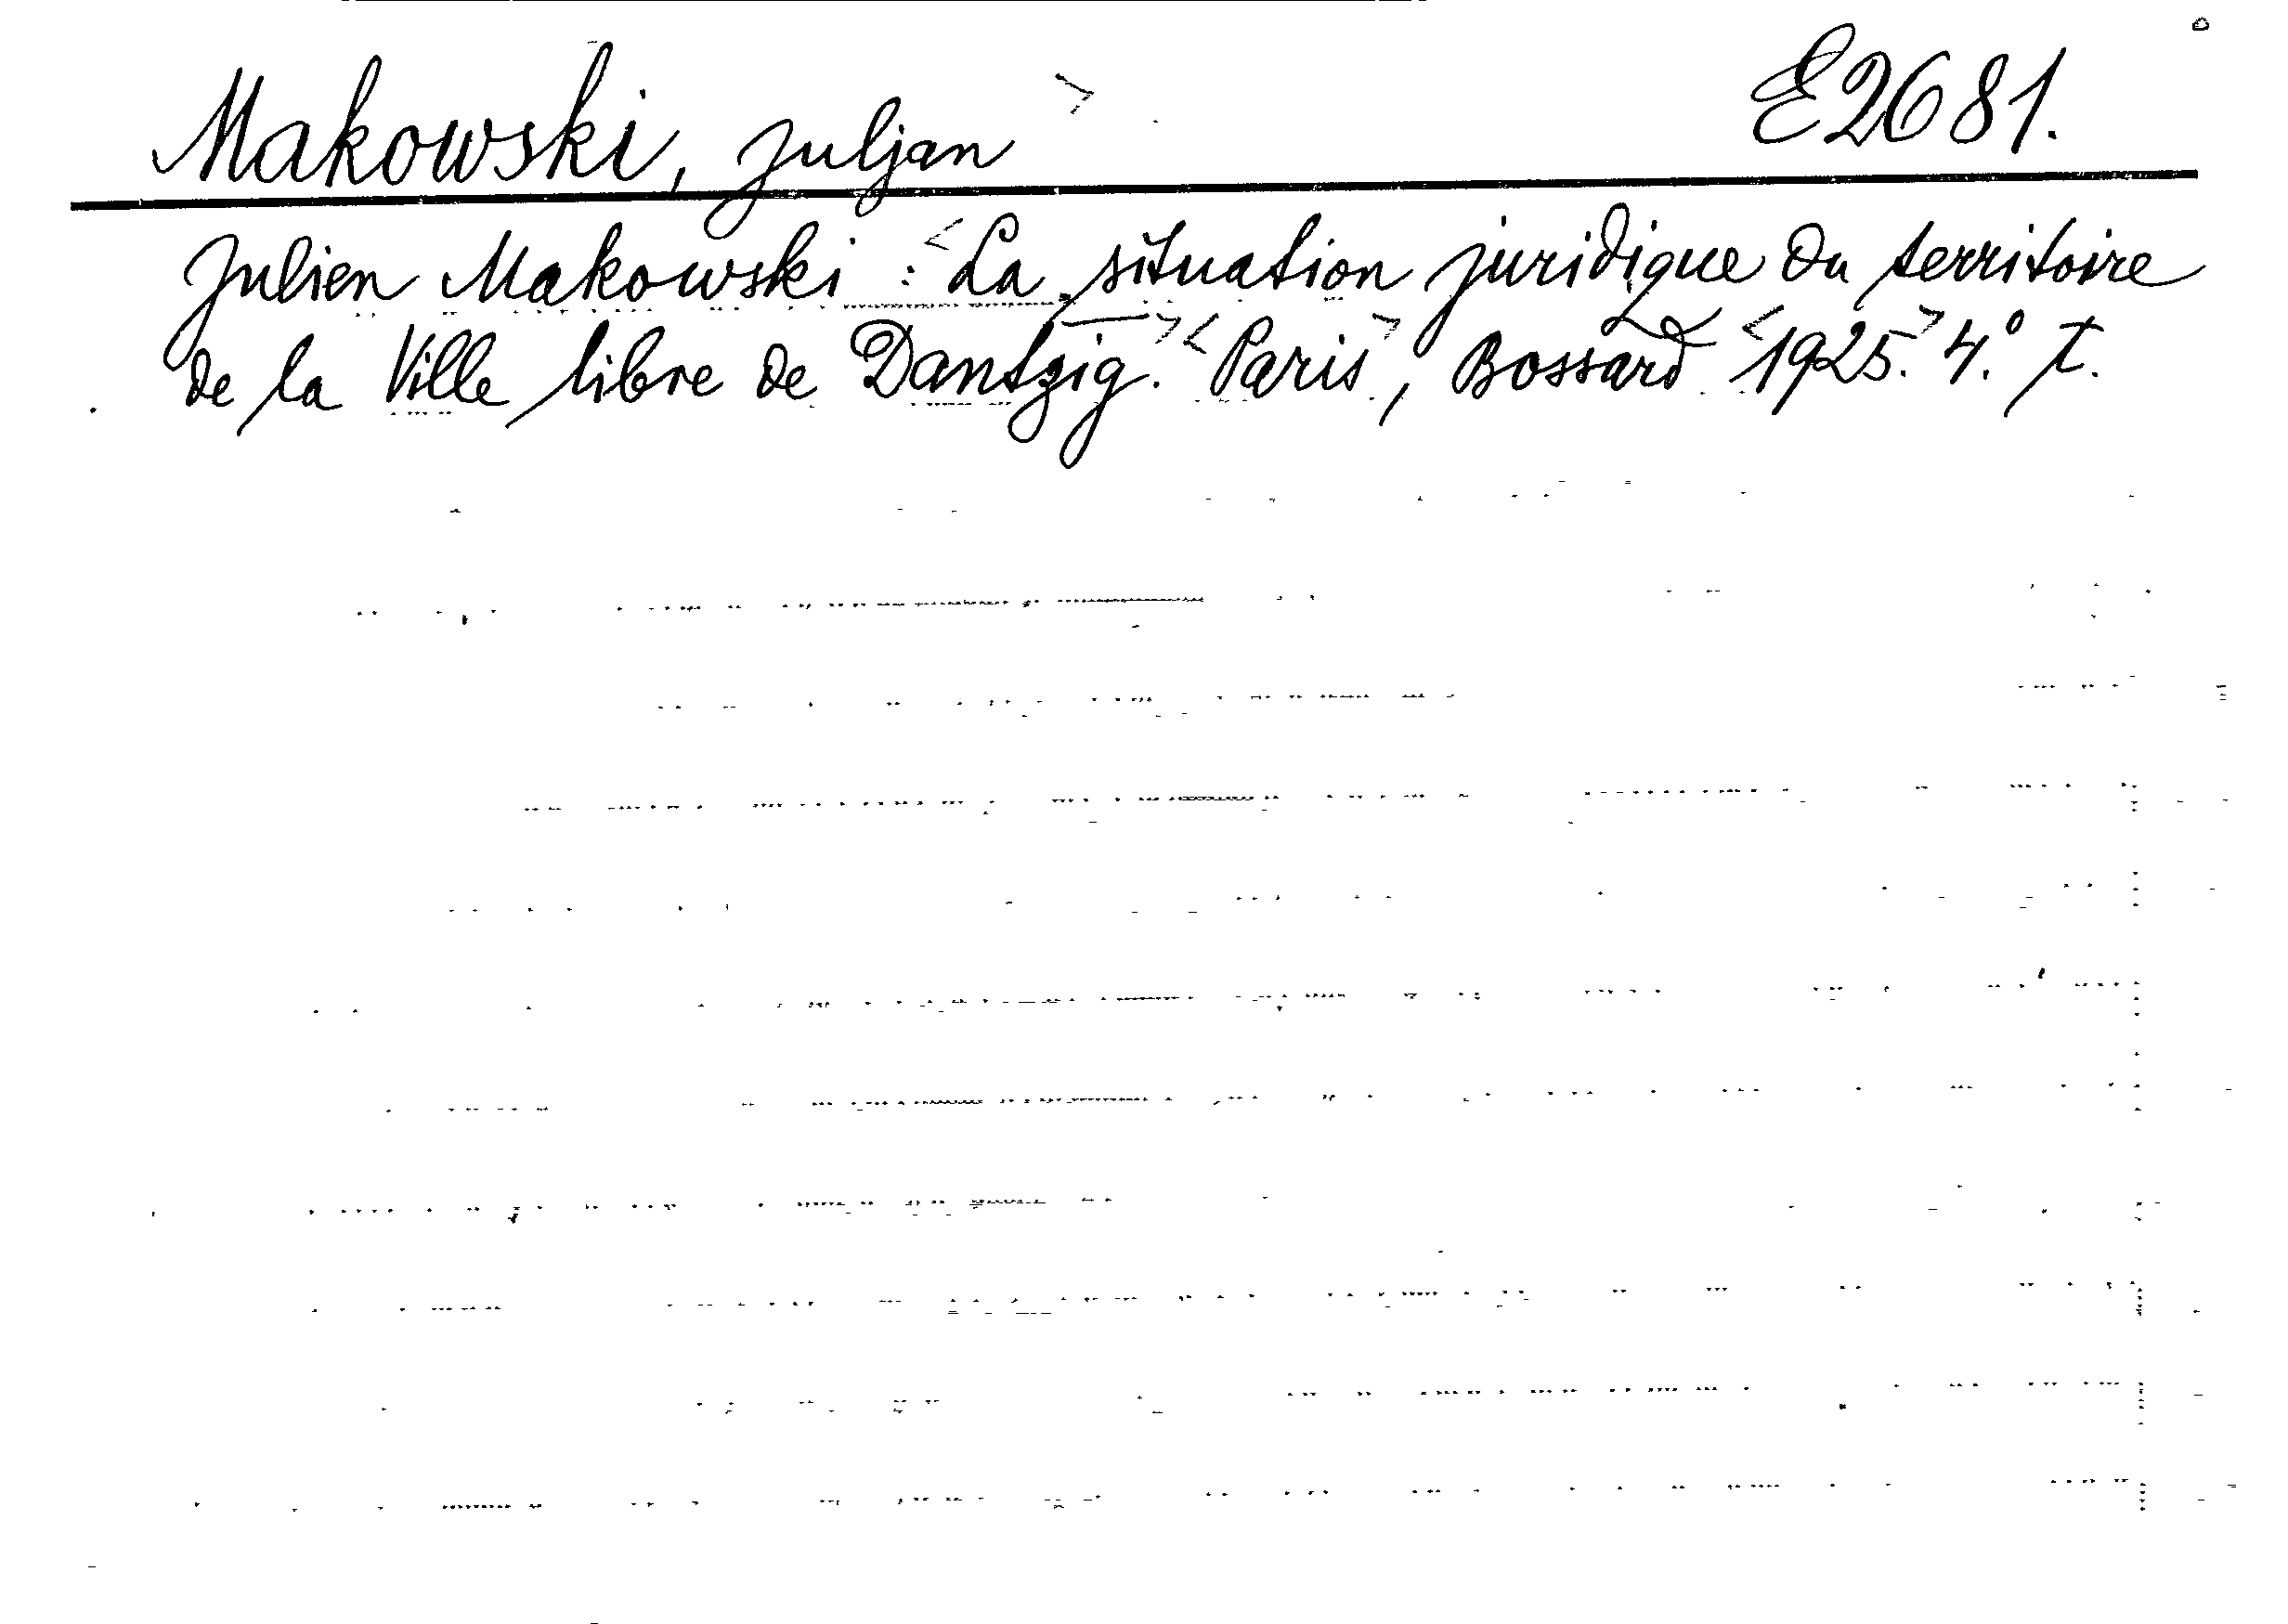 Makowski, Juljan > E2681.
Julien Makowski : <La situation juridique du territoire
de la Ville libre de Dantzig.> <Paris>, Bossard <1925.> 4.° T.